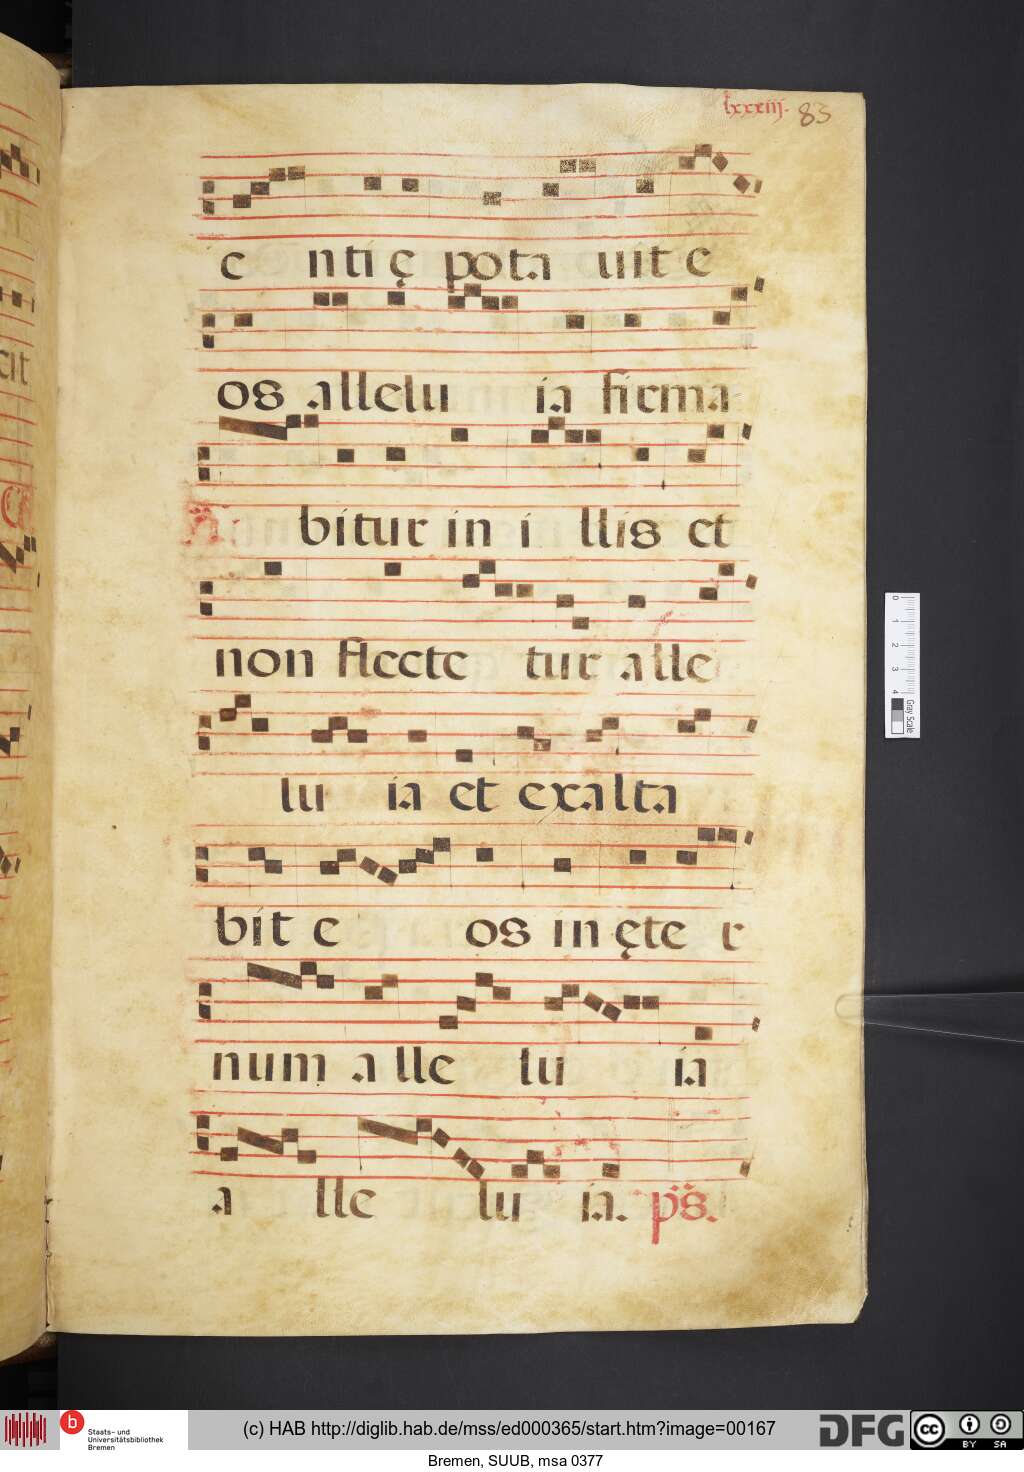 lxxxiij. 83
e nti ę pota uit e
os allelu ia firma
bitur in i llis et
non flecte tur alle
lu ia et exalta
bit e os in ęte r
num alle lu ia
a lle lu ia. ps.
0 1 2 3 4
Gray Scale
cit
b Staats- und
Universitätsbibliothek
Bremen
(c) HAB http://diglib.hab.de/mss/ed000365/start.htm?image=00167
DFG
cc BY SA
Bremen, SUUB, msa 0377